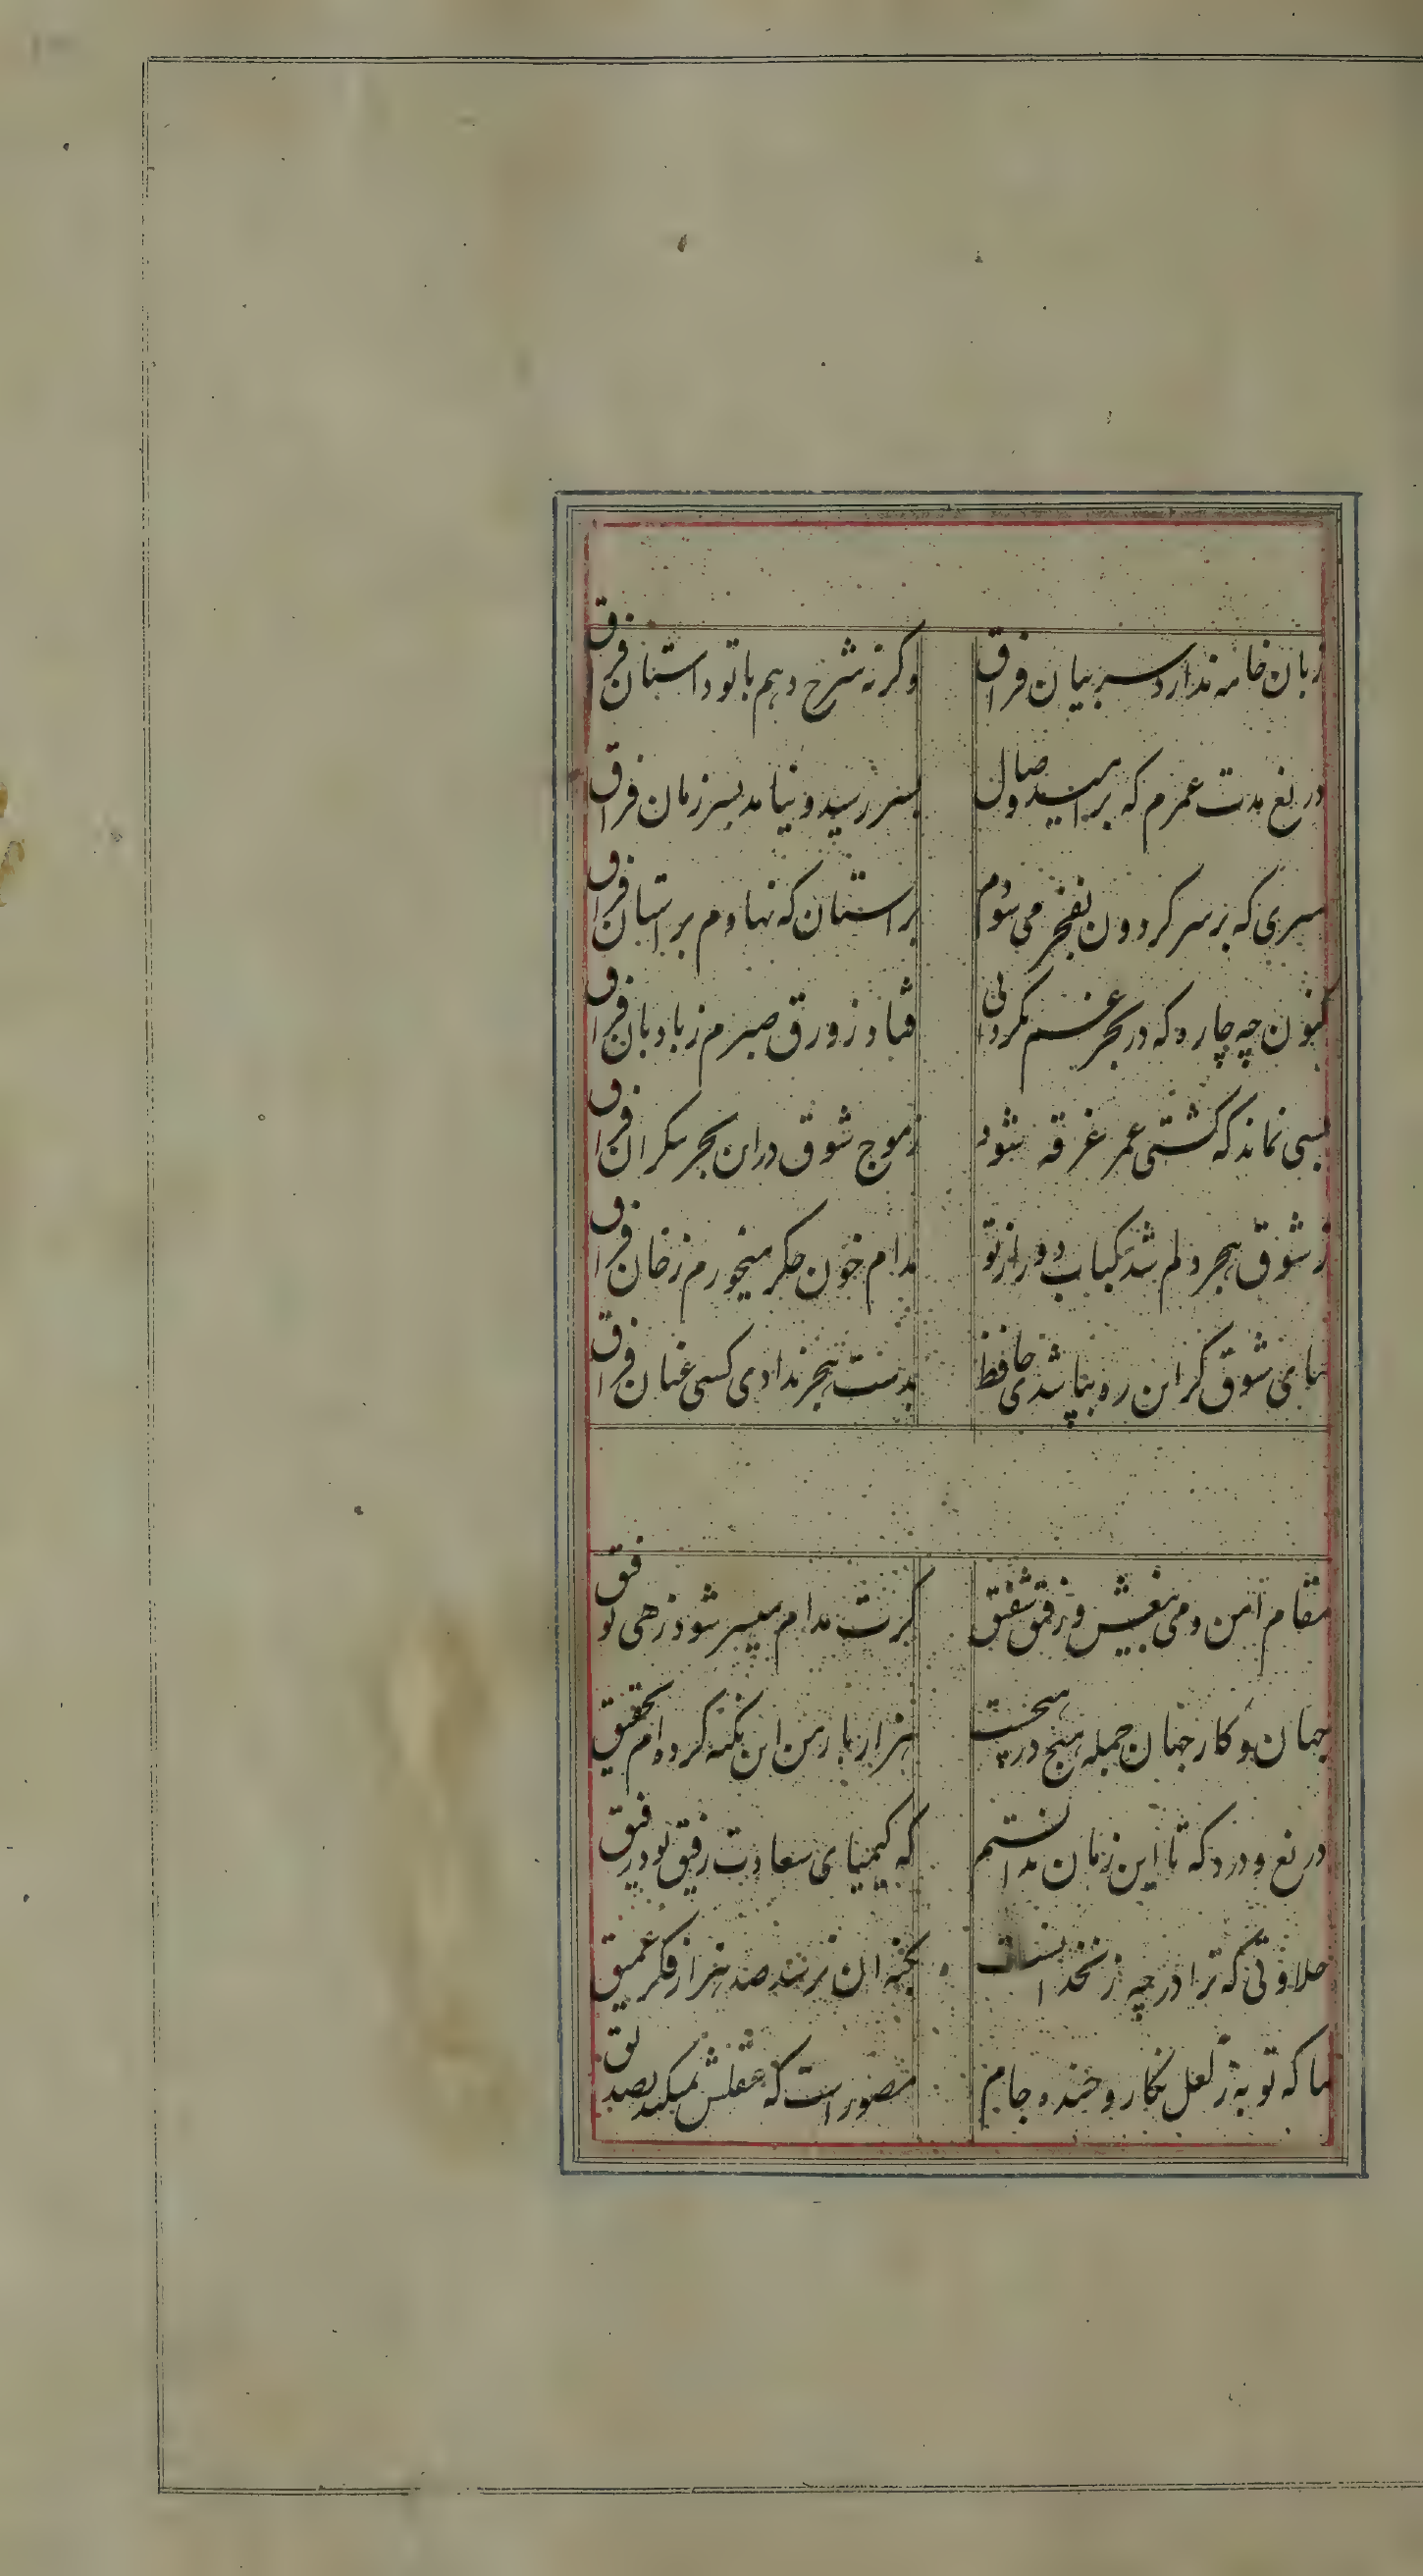 زبان خامه ندارد سر بیان فراق
وگرنه شرح دهم با تو داستان فراق
دریغ مدت عمرم که بر امید وصال
بسر رسید و نیامد بسر زمان فراق
سری که بر سر گردون بفخر می سودم
بر استان که نهادم بر استان فراق
کنون چه چاره که در بحر غم بگردابی
فتاد زورق صبرم ز بادبان فراق
بسی نماند که کشتی عمر غرقه شود
ز موج شوق در ان بحر بیکران فراق
ز شوق هجر دلم شد کباب دور از تو
مدام خون جگر میخورم ز خان فراق
بپای شوق گر این ره بپا شدی حافظ
بدست هجر ندادی کسی عنان فراق
مقام امن و می بیغش و رفیق شفیق
گرت مدام میسر شود زهی توفیق
جهان و کار جهان جمله هیچ در هیچست
هزار بار من این نکته کرده ام تحقیق
دریغ و درد که تا این زمان ندانستم
که کیمیای سعادت رفیق بود رفیق
حلاوتی که ترا در چه زنخدانست
بکنه ان نرسد صد هزار فکر عمیق
بیا که توبه ز لعل نگار و خنده جام
مصور است که عقلش نمیکند تصدیق